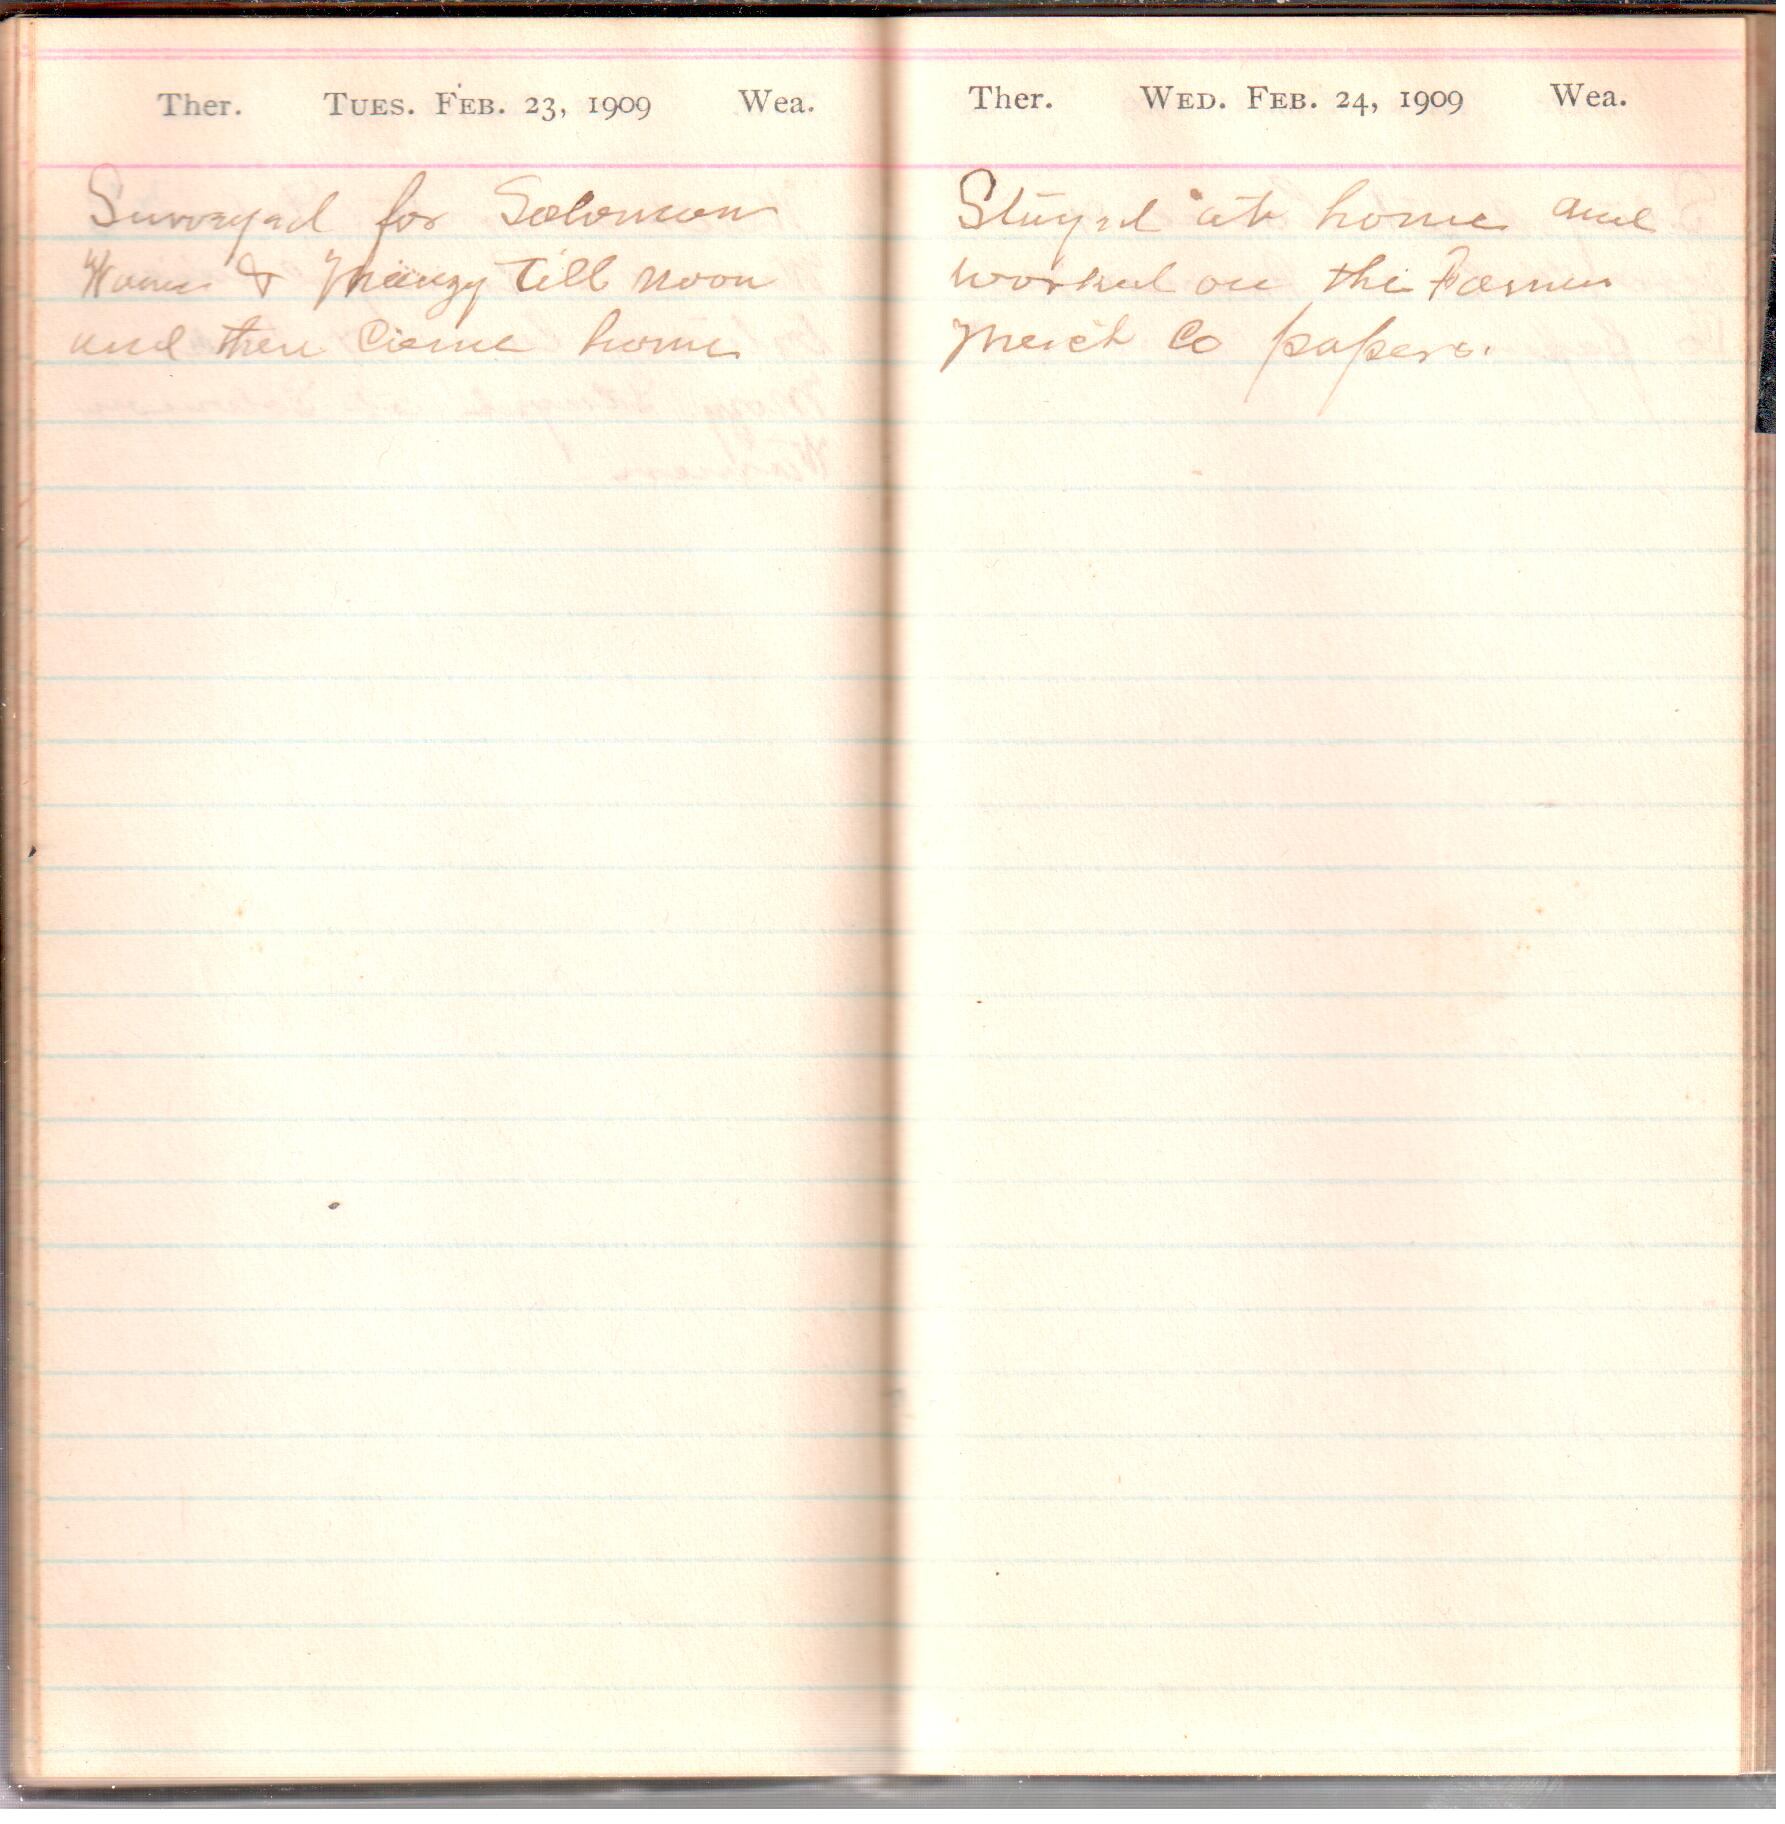 Ther. TUES. FEB. 23, 1909 Wea.
Surveyed for Solomon
& till noon
and then Came home
Ther. WED. FEB. 24, 1909 Wea.
Stayed at home and
worked on the Farmer
Merch Co papers.